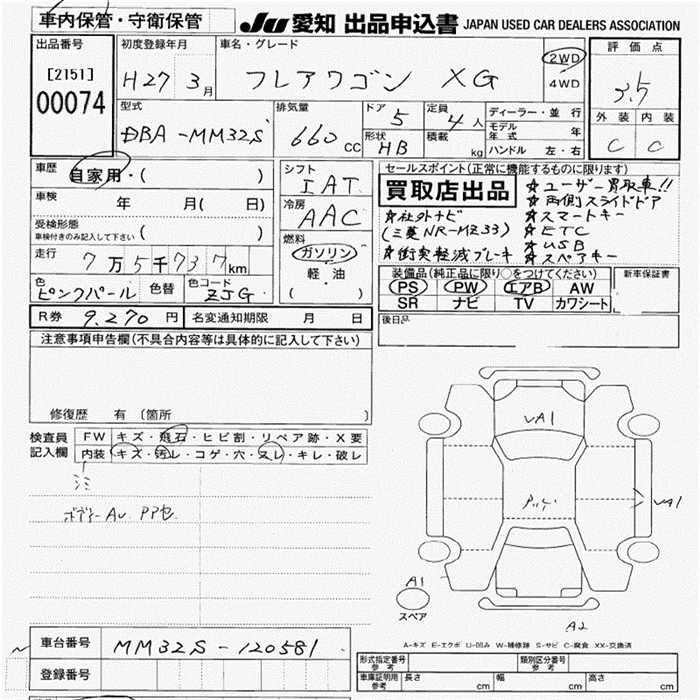 車内保管・守衛保管
JU 愛知 出品申込書 JAPAN USED CAR DEALERS ASSOCIATION
出品番号
[2151]
00074
初度登録年月
H27年 3月
車名・グレード
フレアワゴン XG
2WD
4WD
評価点
3.5
外装 内装
C C
型式
DBA-MM32S
排気量
660cc
ドア 5
形状 HB
定員 4人
積載 kg
ディーラー・並行
モデル年式 年
ハンドル 左・右
車歴
自家用・( )
車検 年 月( 日)
受検形態
車検付きのみ記入して下さい ( )
走行
7万5千737km
色
ピンクパール
色替
色コード
ZJG
シフト
IAT
冷房
AAC
燃料
ガソリン
軽油
( )
セールスポイント(正常に機能するものに限ります)
買取店出品
☆社外ナビ
(三菱NR-MZ33)
☆衝突軽減ブレーキ
☆ユーザー買取車!!
☆両側スライドドア
☆スマートキー
☆ETC
☆USB
☆スペアキー
装備品(純正品に限り○をつけてください)
PS PW エアB AW
SR ナビ TV カワシート
新車保証書
後日品
R券 9,270円
名変通知期限 月 日
注意事項申告欄(不具合内容等は具体的に記入して下さい)
修復歴 有 〔箇所 〕
検査員
記入欄
FW キズ・飛石・ヒビ割・リペア跡・X要
内装 キズ・汚レ・コゲ・穴・ヌレ・キレ・破レ
ボディーAU PP色
VA1
VA1
A1
スペア
A2
A-キズ E-エクボ U-凹み W-補修跡 S-サビ C-腐食 XX-交換済
車台番号 MM32S-120581
登録番号
形式指定番号
参考
類別区分番号
参考
車庫証明用
参考
長さ cm 幅 cm 高さ cm